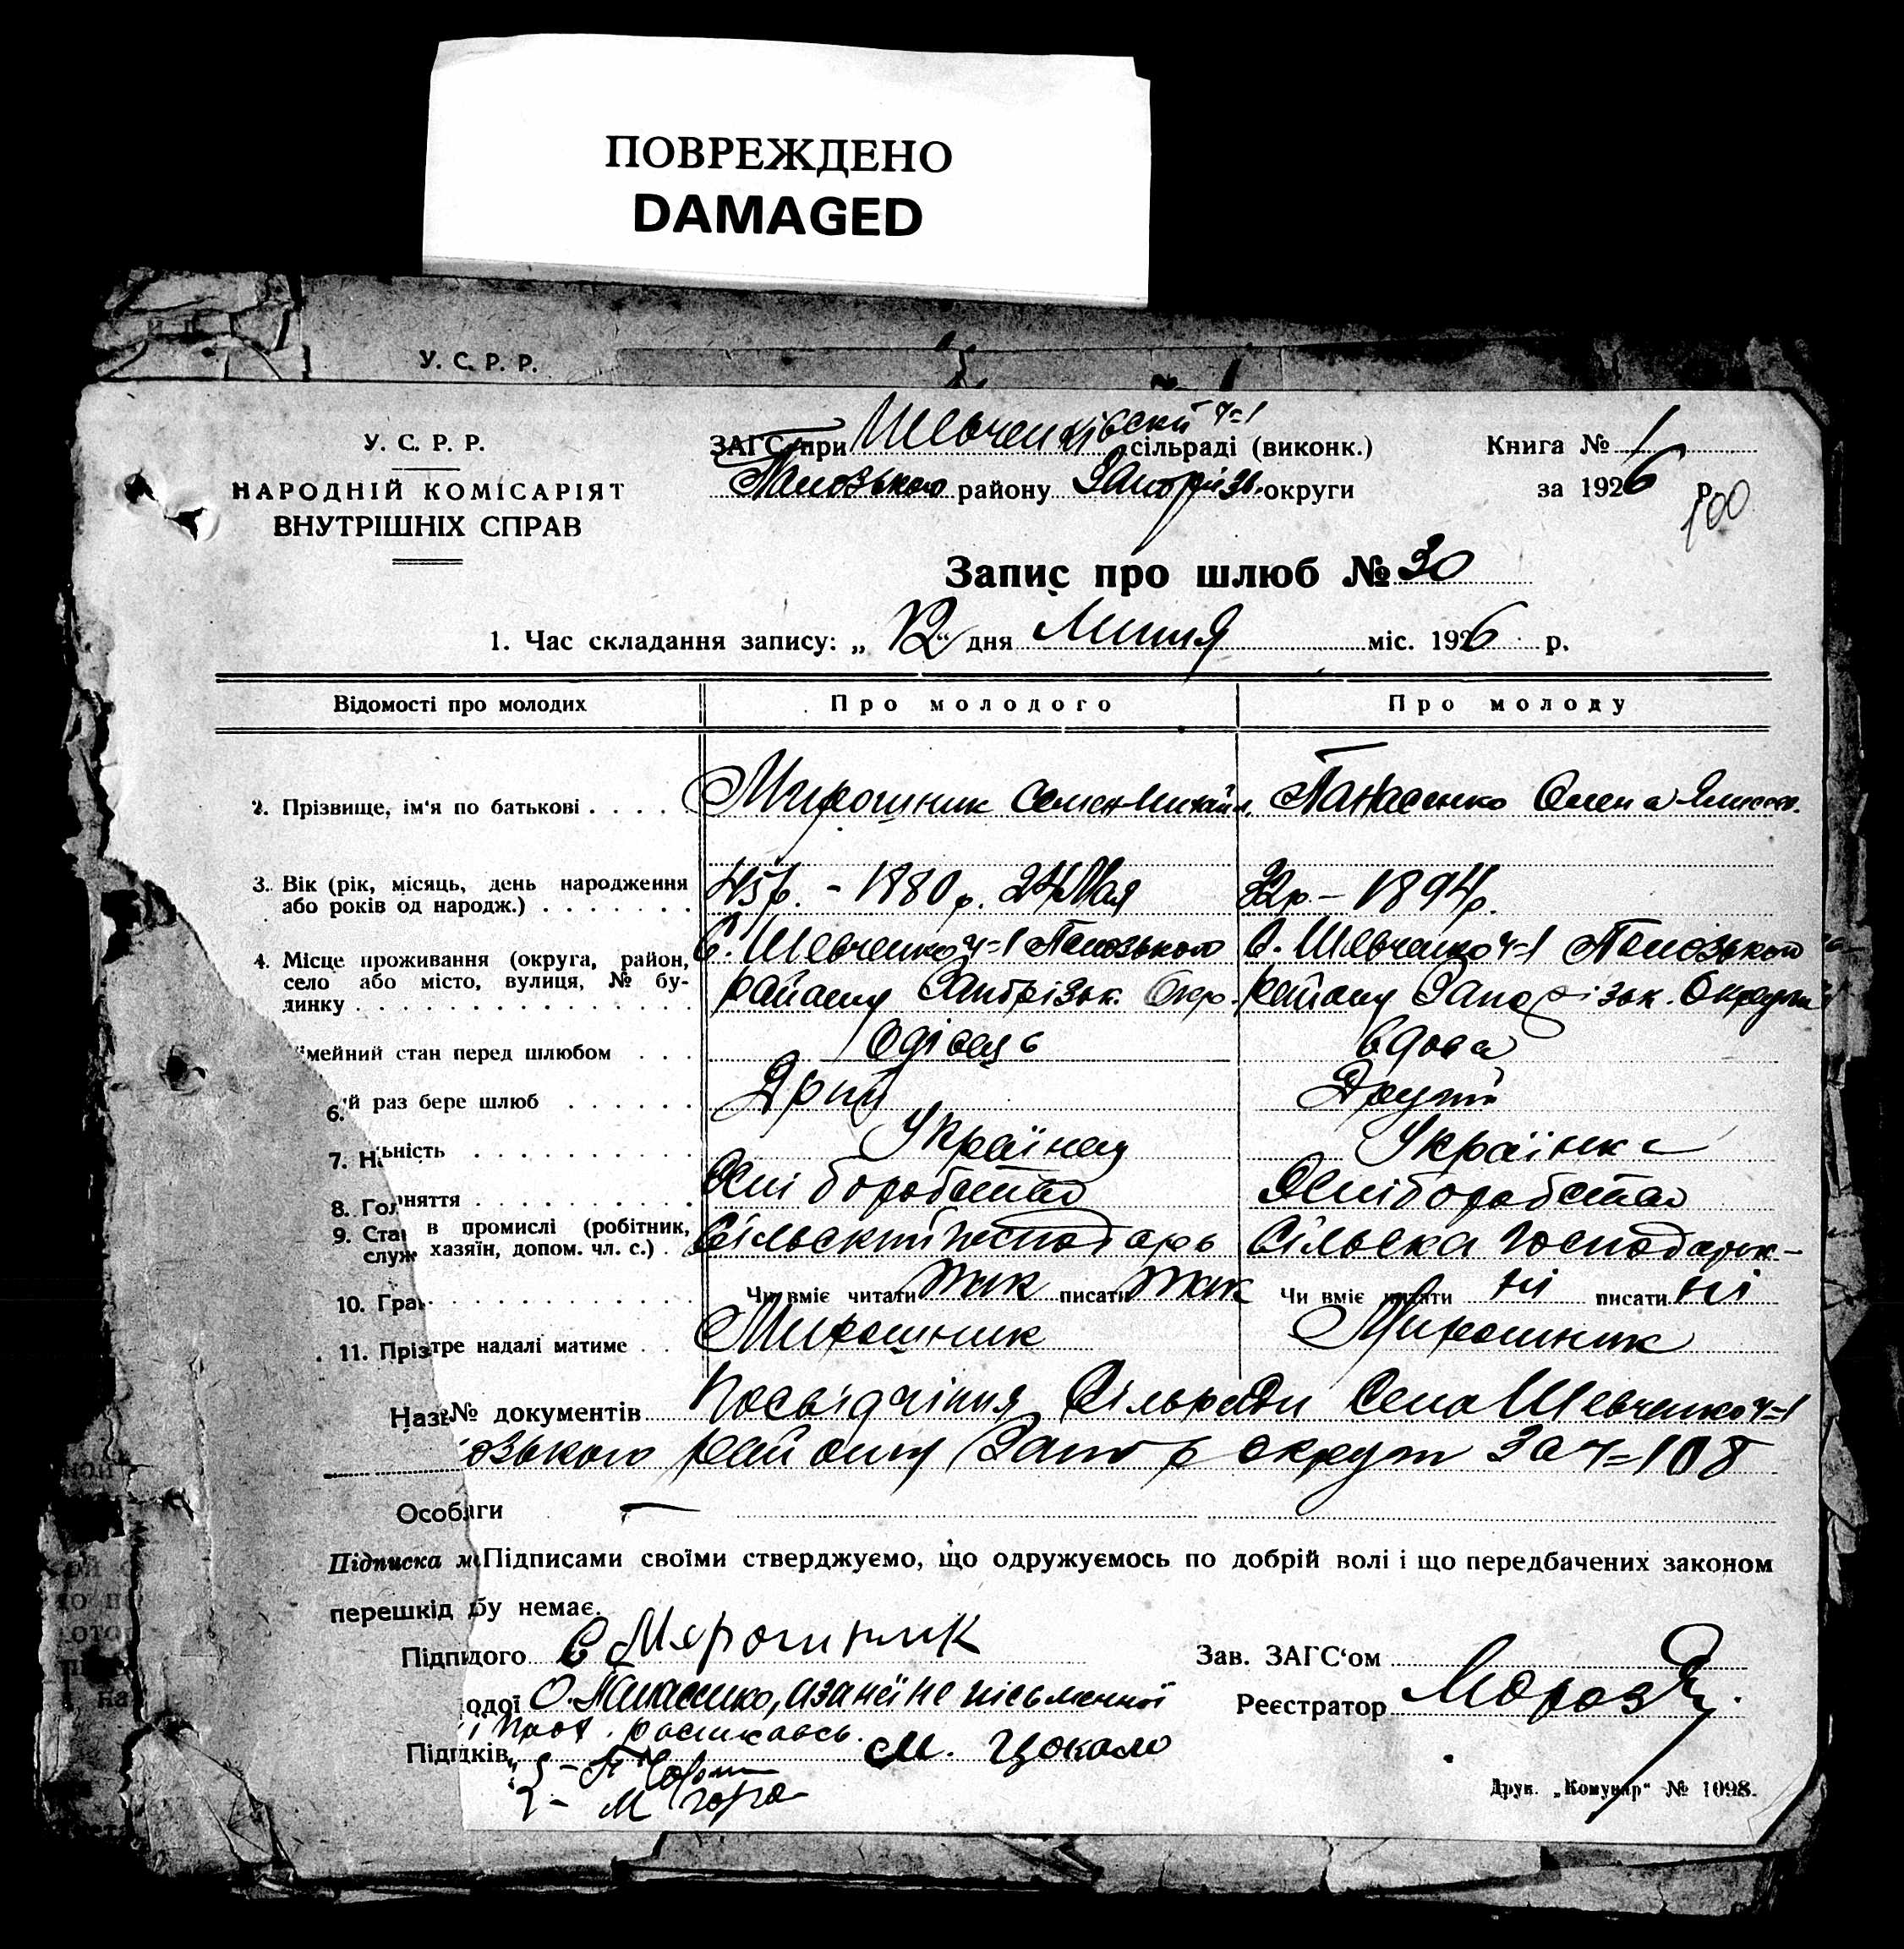 ПОВРЕЖДЕНО
DAMAGED
У. С. Р. Р.
У. С. Р. Р.
НАРОДНІЙ КОМІСАРІЯТ
ВНУТРІШНІХ СПРАВ
ЗАГС при Шевченківскій ч=1 сільраді (виконк.)
району Запоріз. округи
Книга № 1
за 1926 р.
100
Запис про шлюб № 30
1. Час складання запису: „12“ дня Липня міс. 1926 р.
Відомості про молодих Про молодого Про молоду
2. Прізвище, ім'я по батькові Мирошник Семен Михайл. Панасенко Олена
3. Вік (рік, місяць, день народження
або років од народж.) 45 р. - 1880 р. 24 Мая 32 р - 1894 р.
4. Місце проживання (округа, район, С. Шевченко ч=1 с. Шевченко ч=1
село або місто, вулиця, № бу-
динку району Запорізьк. Окр. району Запорізьк. Округи
імейний стан перед шлюбом вдова
6. й раз бере шлюб Другий
7. На ьність Українец Українка
8. Гол няття
9. Стан в промислі (робітник,
служ хазяїн, допом. чл. с.) Сільский господарь Сільска господарк-
10. Грам Чи вміє читати так писати так Чи вміє читати ні писати ні
11. Пріз тре надалі матиме Мирошник Мирошник
Назв № документів Посьвідчіння Сільради Села Шевченко ч=1
озького району Запор округи за ч=108
Особ аги —
Підписка м Підписами своїми стверджуємо, що одружуємось по добрій волі і що передбачених законом
перешкід бу немає.
Підпи дого С Мерошник
одої О. Панасенко, а за неї не письменної
росписавсь. М. Цокало
Підп дків
Зав. ЗАГС'ом
Реєстратор Мороз
Друк. „Комунар“ № 1098.